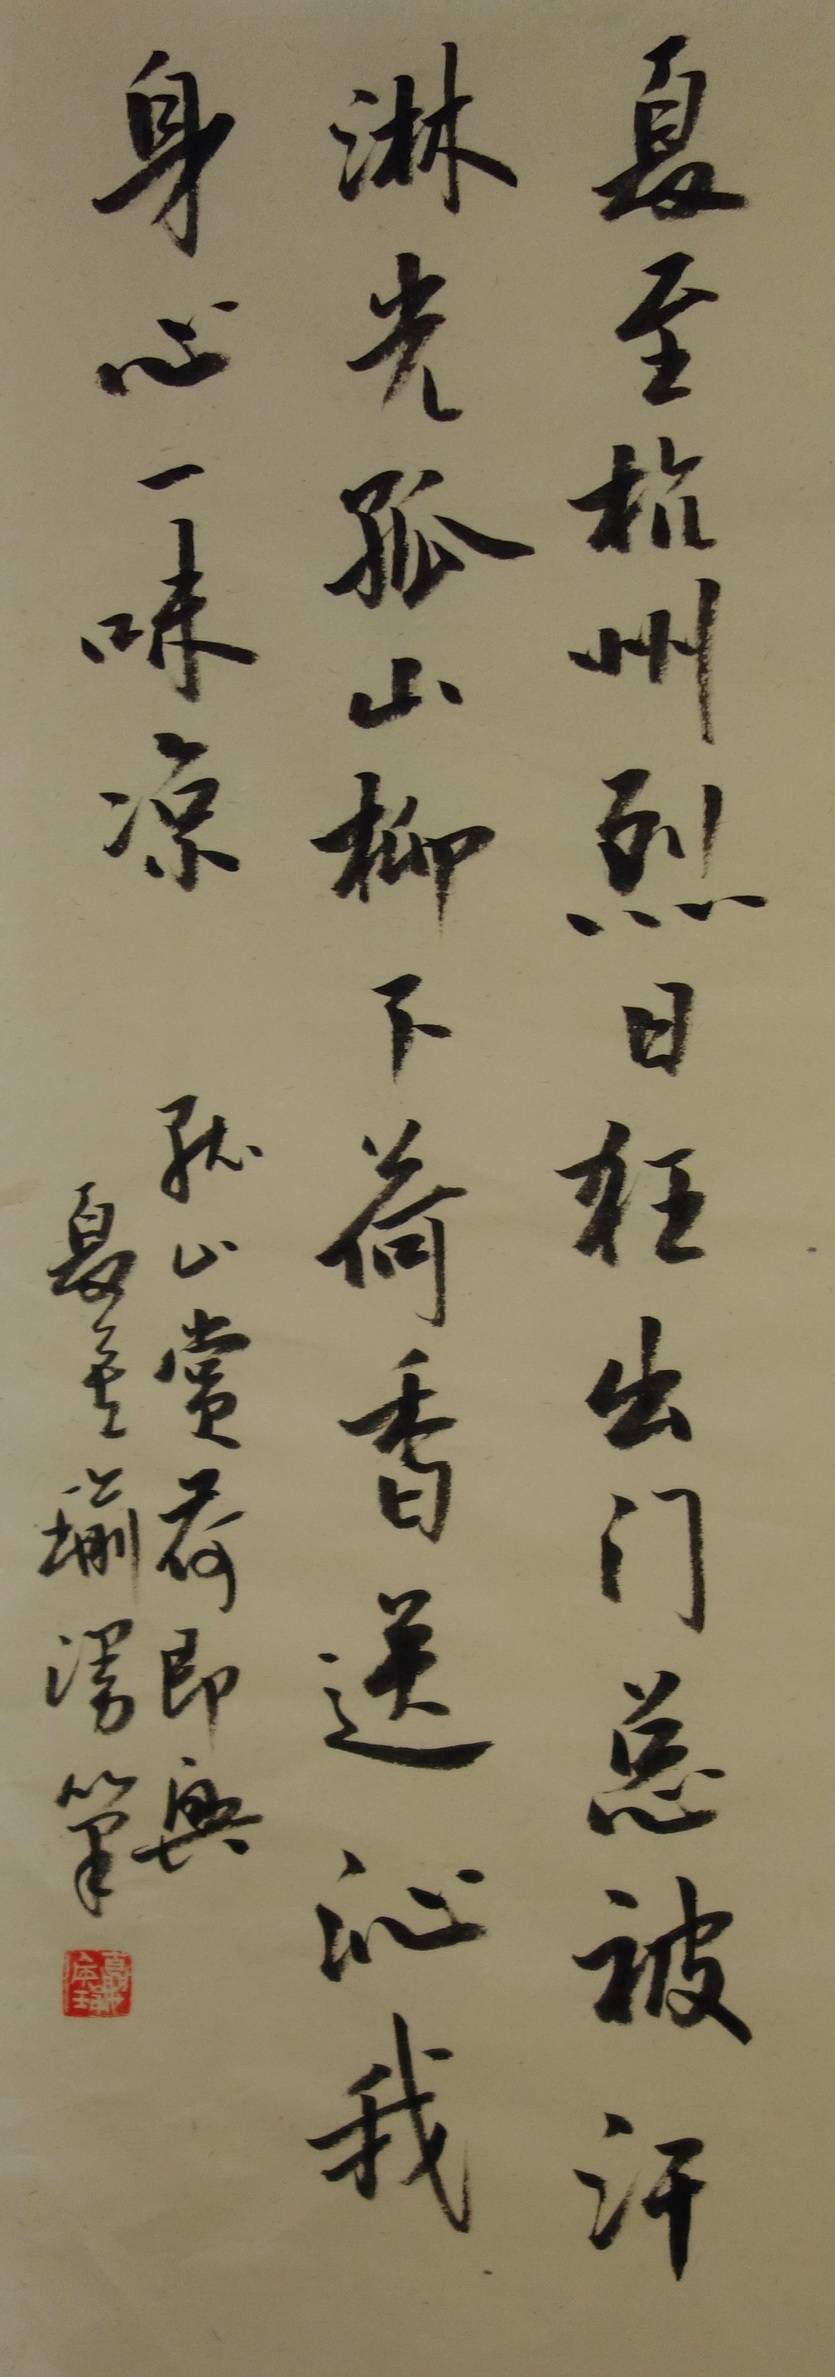 夏至杭州烈日狂出门总被汗
淋光孤山柳下荷香送沁我
身心一味凉
孤山赏荷即兴
夏瑜漫笔